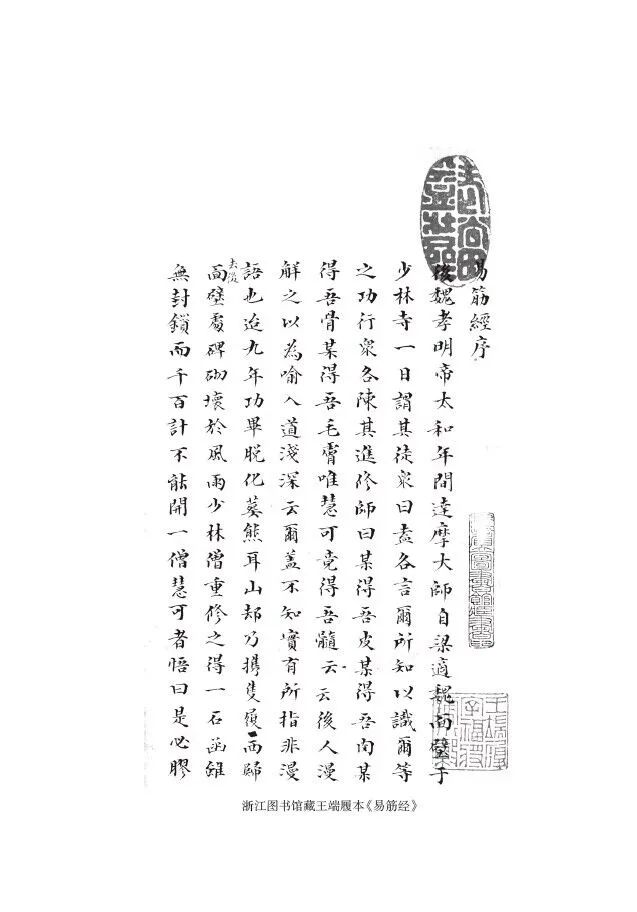 易筋經序
後魏孝明帝太和年間達摩大師自梁適魏面壁于
少林寺一日謂其徒衆曰盍各言爾所知以識爾等
之功行衆各陳其進修師曰某得吾皮某得吾肉某
得吾骨某得吾毛膚唯慧可竟得吾髓云云後人漫
解之以為喻入道淺深云爾蓋不知實有所指非漫
語也迨九年功畢脱化葬熊耳山却乃攜隻履而歸
去後
面壁處碑砌壞於風雨少林僧重修之得一石函雖
無封鎖而千百計不能開一僧慧可者悟曰是必膠
浙江图书馆藏王端履本《易筋经》